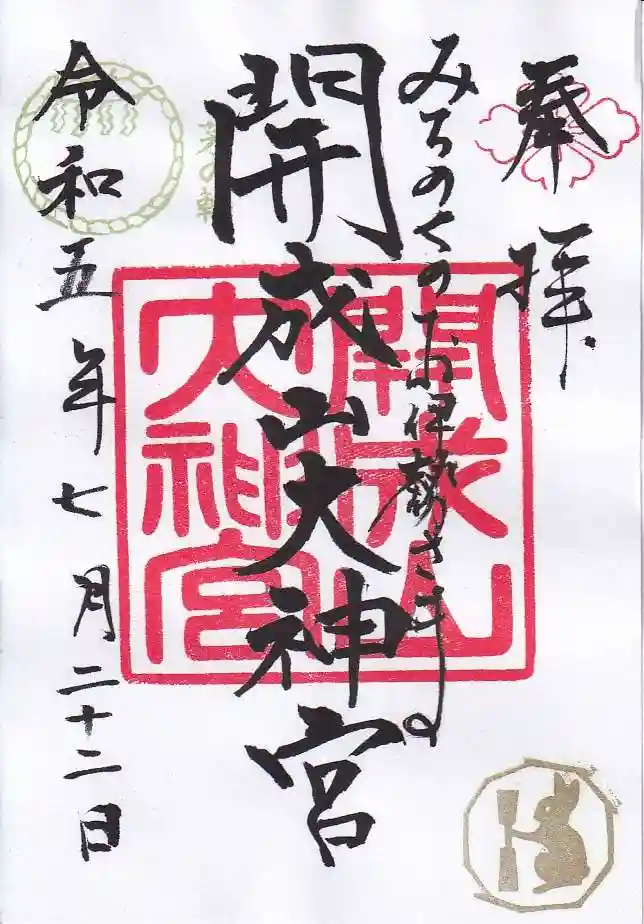 奉拝
みちのくのお伊勢さま
開成山大神宮
開成山
大神宮
茅の輪
令和五年七月二十二日